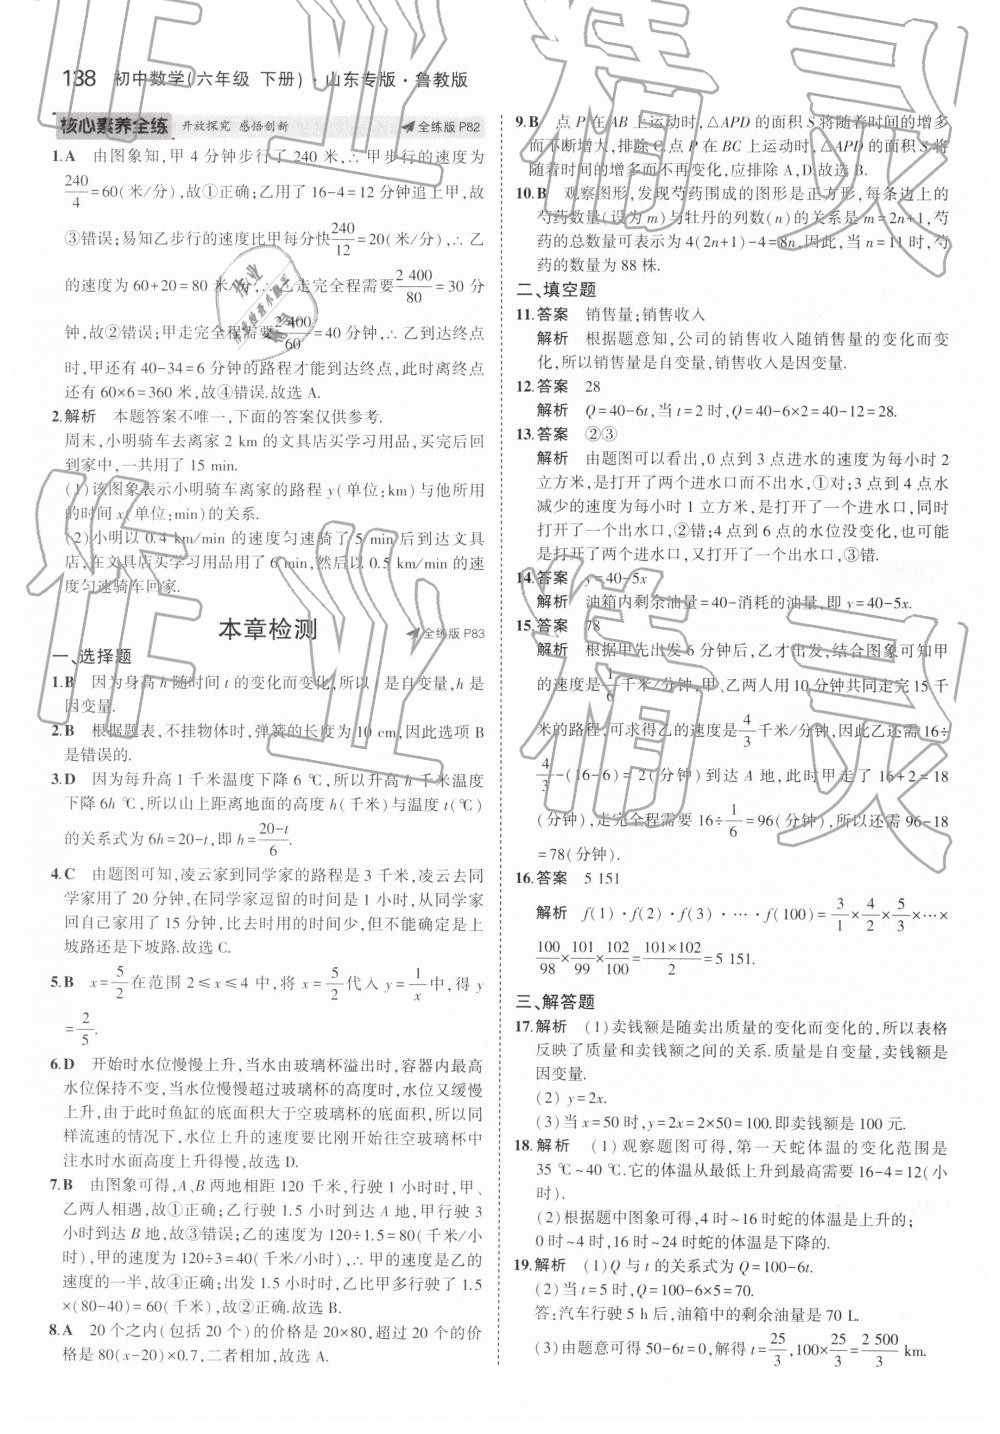 138 初中数学(六年级 下册)·山东专版·鲁教版
核心素养全练 开放探究 感悟创新 全练版 P82
1.A 由图象知,甲 4 分钟步行了 240 米,∴甲步行的速度为
240/4=60(米/分),故①正确;乙用了 16-4=12 分钟追上甲,故
③错误;易知乙步行的速度比甲每分快240/12=20(米/分),∴乙
的速度为 60+20=80 米/分,∴乙走完全程需要2 400/80=30 分
钟,故②错误;甲走完全程需要2 400/60=40 分钟,∴乙到达终点
时,甲还有 40-34=6 分钟的路程才能到达终点,此时离终点
还有 60×6=360 米,故④错误.故选 A.
2.解析 本题答案不唯一,下面的答案仅供参考.
周末,小明骑车去离家 2 km 的文具店买学习用品,买完后回
到家中,一共用了 15 min.
(1)该图象表示小明骑车离家的路程 y(单位:km)与他所用
的时间 x(单位:min)的关系.
(2)小明以 0.4 km/min 的速度匀速骑了 5 min 后到达文具
店,在文具店买学习用品用了 6 min,然后以 0.5 km/min 的速
度匀速骑车回家.
本章检测 全练版 P83
一、选择题
1.B 因为身高 h 随时间 t 的变化而变化,所以 t 是自变量,h 是
因变量.
2.B 根据题表,不挂物体时,弹簧的长度为 10 cm,因此选项 B
是错误的.
3.D 因为每升高 1 千米温度下降 6 ℃,所以升高 h 千米温度
下降 6h ℃,所以山上距离地面的高度 h(千米)与温度 t(℃)
的关系式为 6h=20-t,即 h=20-t/6.
4.C 由题图可知,凌云家到同学家的路程是 3 千米,凌云去同
学家用了 20 分钟,在同学家逗留的时间是 1 小时,从同学家
回自己家用了 15 分钟,比去时用的时间少,但不能确定是上
坡路还是下坡路.故选 C.
5.B x=5/2在范围 2≤x≤4 中,将 x=5/2代入 y=1/x中,得 y
=2/5.
6.D 开始时水位慢慢上升,当水由玻璃杯溢出时,容器内最高
水位保持不变,当水位慢慢超过玻璃杯的高度时,水位又缓慢
上升,由于此时鱼缸的底面积大于空玻璃杯的底面积,所以同
样流速的情况下,水位上升的速度要比刚开始往空玻璃杯中
注水时水面高度上升得慢,故选 D.
7.B 由图象可得,A、B 两地相距 120 千米,行驶 1 小时时,甲、
乙两人相遇,故①正确;乙行驶 1.5 小时到达 A 地,甲行驶 3
小时到达 B 地,故③错误;乙的速度为 120÷1.5=80(千米/小
时),甲的速度为 120÷3=40(千米/小时),∴甲的速度是乙的
速度的一半,故④正确;出发 1.5 小时时,乙比甲多行驶了 1.5
×(80-40)=60(千米),故②正确.故选 B.
8.A 20 个之内(包括 20 个)的价格是 20×80,超过 20 个的价
格是 80(x-20)×0.7,二者相加,故选 A.
9.B 点 P 在 AB 上运动时,△APD 的面积 S 将随着时间的增多
而不断增大,排除 C.点 P 在 BC 上运动时,△APD 的面积 S 将
随着时间的增多而不再变化,应排除 A,D.故选 B.
10.B 观察图形,发现芍药围成的图形是正方形,每条边上的
芍药数量(设为 m)与牡丹的列数(n)的关系是 m=2n+1,芍
药的总数量可表示为 4(2n+1)-4=8n,因此,当 n=11 时,芍
药的数量为 88 株.
二、填空题
11.答案 销售量;销售收入
解析 根据题意知,公司的销售收入随销售量的变化而变
化,所以销售量是自变量,销售收入是因变量.
12.答案 28
解析 Q=40-6t,当 t=2 时,Q=40-6×2=40-12=28.
13.答案 ②③
解析 由题图可以看出,0 点到 3 点进水的速度为每小时 2
立方米,是打开了两个进水口而不出水,①对;3 点到 4 点水
减少的速度为每小时 1 立方米,是打开了一个进水口,同时
打开了一个出水口,②错;4 点到 6 点的水位没变化,也可能
是打开了两个进水口,又打开了一个出水口,③错.
14.答案 y=40-5x
解析 油箱内剩余油量=40-消耗的油量,即 y=40-5x.
15.答案 78
解析 根据甲先出发 6 分钟后,乙才出发,结合图象可知甲
的速度是1/6千米/分钟,甲、乙两人用 10 分钟共同走完 15 千
米的路程,可求得乙的速度是4/3千米/分钟,因此乙还需 16÷
4/3-(16-6)=2(分钟)到达 A 地,此时甲走了 16+2=18
(分钟),走完全程需要 16÷1/6=96(分钟),所以还需 96-18
=78(分钟).
16.答案 5 151
解析 f(1)·f(2)·f(3)·…·f(100)=3/1×4/2×5/3×…×
100/98×101/99×102/100=101×102/2=5 151.
三、解答题
17.解析 (1)卖钱额是随卖出质量的变化而变化的,所以表格
反映了质量和卖钱额之间的关系.质量是自变量,卖钱额是
因变量.
(2)y=2x.
(3)当 x=50 时,y=2x=2×50=100.即卖钱额是 100 元.
18.解析 (1)观察题图可得,第一天蛇体温的变化范围是
35 ℃~40 ℃.它的体温从最低上升到最高需要 16-4=12(小
时).
(2)根据题中图象可得,4 时~16 时蛇的体温是上升的;
0 时~4 时,16 时~24 时蛇的体温是下降的.
19.解析 (1)Q 与 t 的关系式为 Q=100-6t.
(2)当 t=5 时,Q=100-6×5=70.
答:汽车行驶 5 h 后,油箱中的剩余油量是 70 L.
(3)由题意可得 50-6t=0,解得 t=25/3,100×25/3=2 500/3 km.